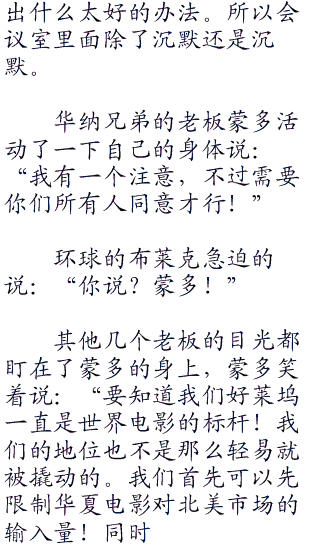 出什么太好的办法。所以会
议室里面除了沉默还是沉
默。
华纳兄弟的老板蒙多活
动了一下自己的身体说：
“我有一个注意，不过需要
你们所有人同意才行！”
环球的布莱克急迫的
说：“你说？蒙多！”
其他几个老板的目光都
盯在了蒙多的身上，蒙多笑
着说：“要知道我们好莱坞
一直是世界电影的标杆！我
们的地位也不是那么轻易就
被撬动的。我们首先可以先
限制华夏电影对北美市场的
输入量！同时